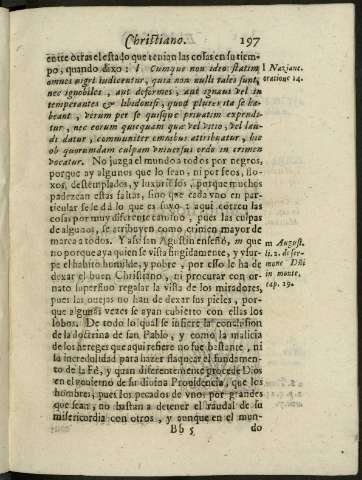 Christiano. 197
entre otras el estado que tenian las cosas en su tiem-
po, quando dixo: l Cumque non ideo statim
omnes nigri iudicentur, quia non nulli tales sunt,
nec ignobiles, aut deformes, aut ignaui vel in
temperantes & libidinosi, quod plures ita se ha-
beant, verum per se quisque priuatim expendi-
tur, nec eorum quicquam quæ vel vitio, vel lau-
di datur, communiter omnibus attribuatur, hic
ob quorumdam culpam vniuersus ordo in crimen
vocatur. No juzga el mundo a todos por negros,
porque ay algunos que lo sean, ni por feos, flo-
xos, destemplados, y luxuriosos, porque muchos
padezcan estas faltas, sino que cada vno en par-
ticular se le dà lo que es suyo: aqui corren las
cosas por muy diferente camino, pues las culpas
de algunos, se atribuyen como crimen mayor de
marca a todos. Y assi san Agustin enseñò, m que
no porque aya quien se vista fingidamente, y vsur-
pe el habito humilde, y pobre, por esso le ha de
dexar el buen Christiano, ni procurar con or-
nato superfluo regalar la vista de los miradores,
pues las ouejas no han de dexar sus pieles, por-
que algunas vezes se ayan cubierto con ellas los
lobos. De todo lo qual se infiere la conclusion
de la doctrina de san Pablo, y como la malicia
de los hereges que aqui refiere no fue bastante, ni
la incredulidad para hazer flaquear el fundamen-
to de la Fè, y quan diferentemente procede Dios
en el gouierno de su diuina Prouidencia, que los
hombres, pues los pecados de vno, por grandes
que sean, no bastan a detener el raudal de su
misericordia con otros, y aunque en el mun-
Bb 5 do
l Nazianc.
oratione 14.
m August.
li. 2. de ser-
mone Dñi
in monte,
cap. 19.